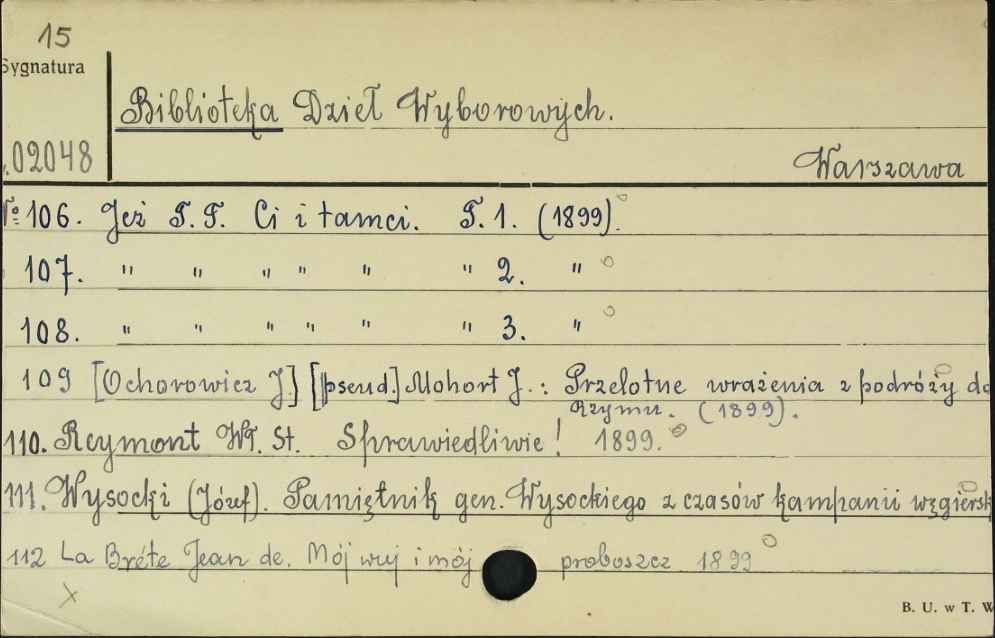 15
Sygnatura
Biblioteka Dzieł Wyborowych.
02048
Warszawa
№ 106. Jeż T. T. Ci i tamci. T. 1. (1899).
107. " " " " " " 2. "
108. " " " " " " 3. "
109 [Ochorowicz J.] [pseud.] Mohort J.: Przelotne wrażenia z podróży do
Rzymu. (1899).
110. Reymont Wł. St. Sprawiedliwie! 1899.
111. Wysocki (Józef). Pamiętnik gen. Wysockiego z czasów kampanii węgiersk
112 La Brète Jean de. Mój wuj i mój proboszcz 1899
x
B. U. w T. W